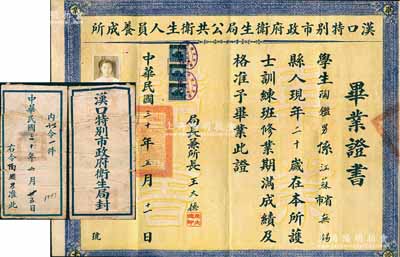 漢口特别市政府衛生局公共衛生人員養成所
畢業證書
學生陶鑑男係江蘇省無錫市
縣人現年二十歲在本所護
士訓練班修業期滿成績及
格准予畢業此證
局長兼所長王大德
中華民國三十年五月十一日
漢口特别市政府衛生局封
號
內令一件
中華民國三十年 月 日
右令陶鑑男准此